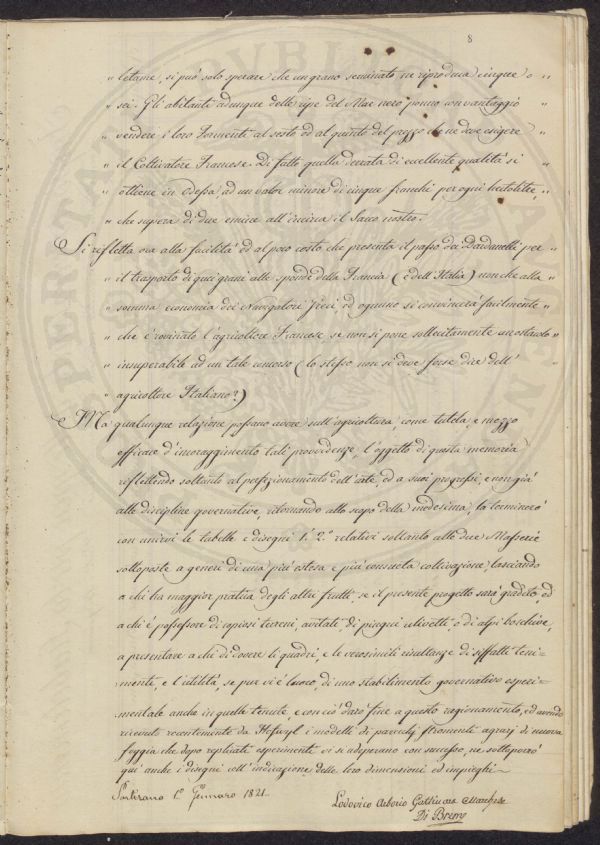 8
" letame, si può solo sperare che un grano seminato ne riproduca cinque o "
" sei. Gli abitanti adunque delle ripe del Mar nero ponno con vantaggio "
" vendere i loro Formenti al sesto od al quinto del prezzo che ne deve esigere "
" il Coltivatore Francese. Di fatto quella derrata di eccellente qualità si "
" ottiene in Odessa ad un valor minore di cinque franchi per ogni hectolitre, "
" che supera di due emine all'incirca il Sacco nostro.
Si rifletta ora alla facilità ed al poco costo che presenta il passo dei Dardanelli per "
" il trasporto di quei grani alle sponde della Francia (e dell'Italia) non che alla "
" somma economia dei Navigatori Greci, ed ognuno si convincerà facilmente "
" che è rovinato l'agricoltore Francese, se non si pone sollecitamente un ostacolo "
" insuperabile ad un tale concorso (lo stesso non si deve forse dire dell'
" agricoltore Italiano?)
Ma qualunque relazione possano avere sull'agricoltura come tutela, e mezzo
efficace d'incoraggimento tali providenze, l'oggetto di questa memoria
riflettendo soltanto al perfezionamento dell'arte, ed a suoi progressi, e non già
alle discipline governative, ritornando allo scopo della medesima, la terminerò
con unirvi le tabelle e disegni 1.° 2.° relativi soltanto alle due Masserie
sottoposte a generi di una più estesa e più consueta coltivazione, lasciando
a chi ha maggior pratica degli altri frutti, se il presente progetto sarà gradito, od
a chi è possessore di copiosi terreni, avitati, di pingui olivetti, o di alpi boschive,
a presentare a chi di dovere li quadri, e le verosimili risultanze di siffatti teni-
mente, e l'utilità, se pur vi è luogo, di uno stabilimento governativo esperi-
mentale anche in quelle tenute, e con ciò darò fine a questo ragionamento, ed avendo
ricevuti recentemente da Hofwyl i modelli di parecchj stromenti agrarj di nuova
foggia che dopo replicati esperimenti ivi si adoperano con successo, ne sottoporrò
quì anche i disegni coll'indicazione delle loro dimensioni ed impieghi
Sartirano 1.° Gennaro 1821.
Lodovico Arborio Gattinara Marchese
Di Breme